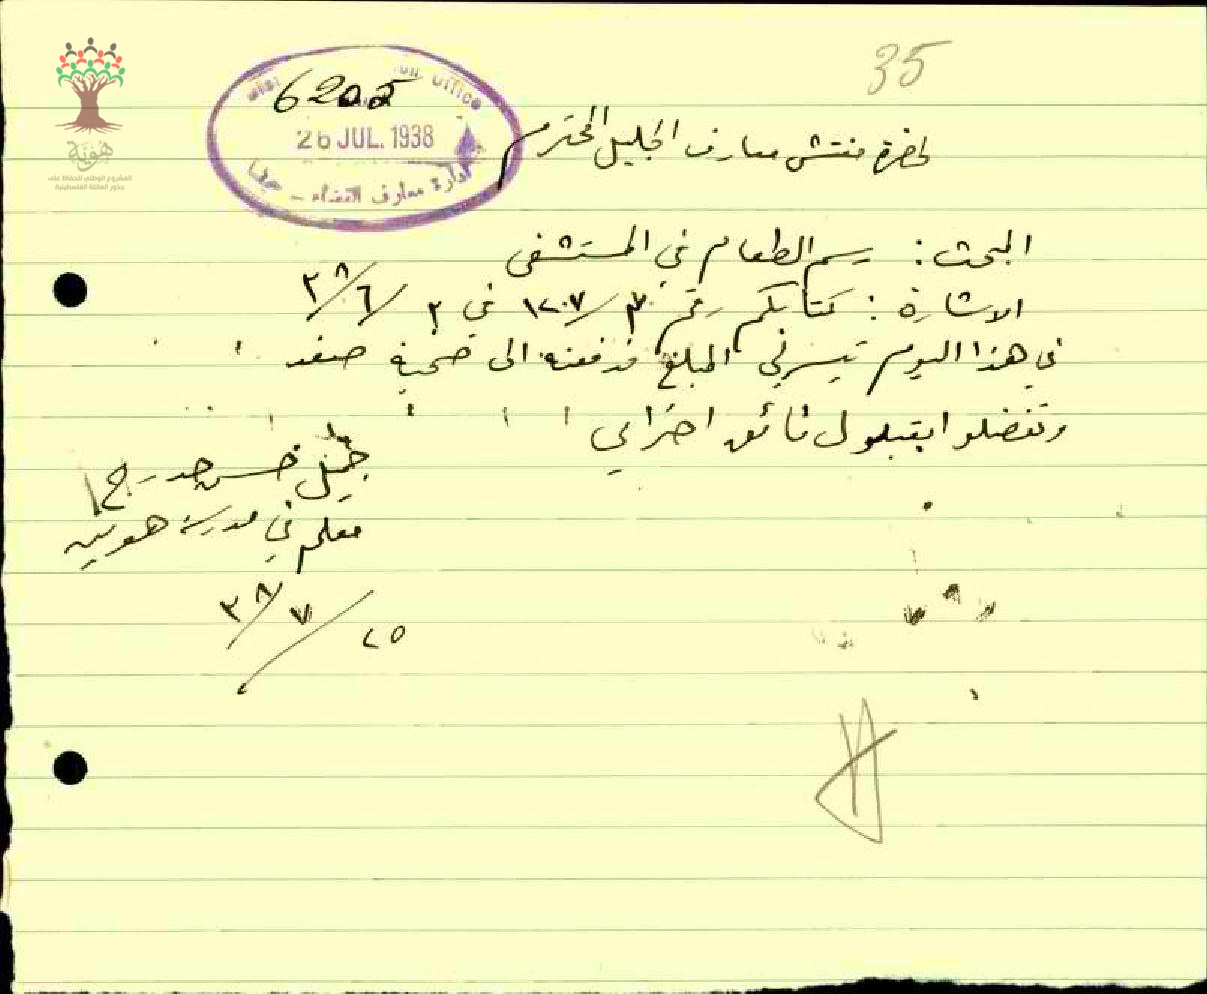 35
6205
Office
26 JUL. 1938
ادارة معارف القضاء -
هُويَّة
المشروع الوطني للحفاظ على
جذور العائلة الفلسطينية
لحضرة مفتش معارف الجليل المحترم
المبحث : رسم الطعام في المستشفى
الاشارة : كتابكم رقم ١٢٠٧/٣ في ٢/٦/٣٨
في هذا اليوم تيسر لي المبلغ فدفعته الى صحية صفد
وتفضلوا بقبول فائق احترامي
حسن
معلم في مدرسة هونين
٢٥/٧/٣٨